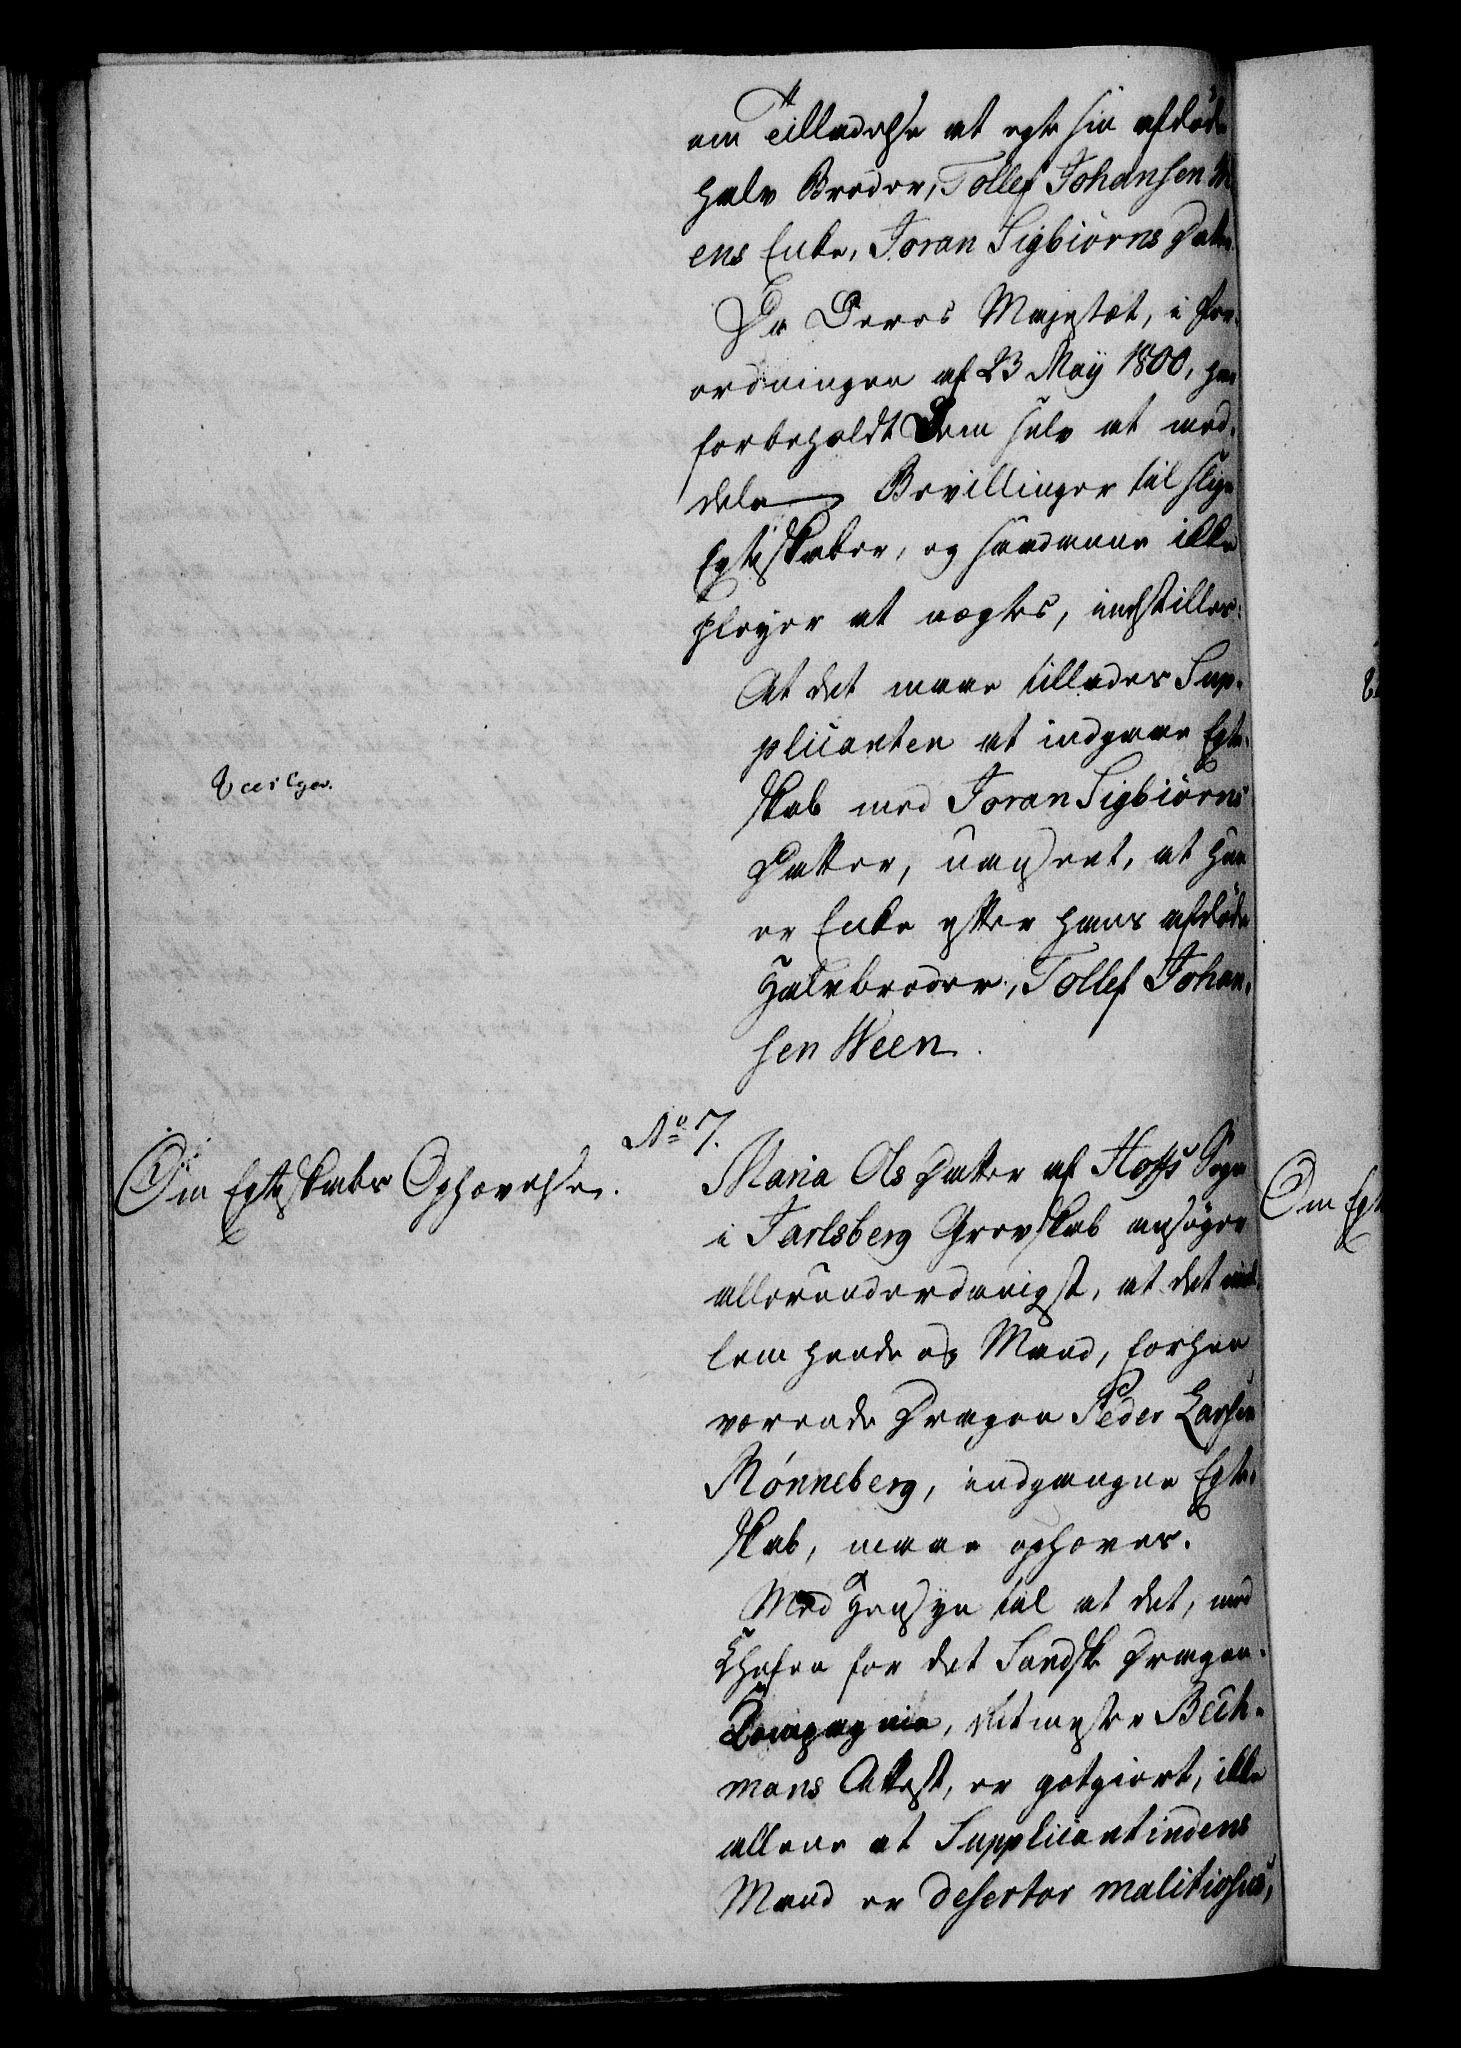 om Tilladelse at egte sin afdøde
halv Broder, Tollef Johansen W
ens Enke, Joran Sigbiörns Datter.
Da Deres Majestæt, i For-
ordningen af 23 Maij 1800, har
forbeholdt Dem selv at med-
dele Bevillinger til slige
Egteskaber, og saadanne ikke
pleyer at nægtes, indstilles:
At det maae tillades Sup-
plicanten at indgaae Egte-
skab med Joran Sigbiörns
Datter, uanseet, at hun
er Enke efter hans afdøde
Halvbroder, Tollef Johan-
sen Ween.
No 7.
Om Egteskabs Ophævelse.
Maria Ols Datter af Hoffs Sogn
i Jarlsberg Grevskab ansøger
allerunderdanigst, at det mel-
lem hende og Mand, forhen
værende Dragon Peder Larsen
Rönneberg, indgangne Egte-
skab, maae ophæves.
Med Hensyn til at det, med
Chefen for det Sandske Dragon-
Compagnie, Ritmester Bech-
mans Attest, er godtgiort, ikke
allene at Supplicantindens
Mand er desertor malitiosus,
Om Egte